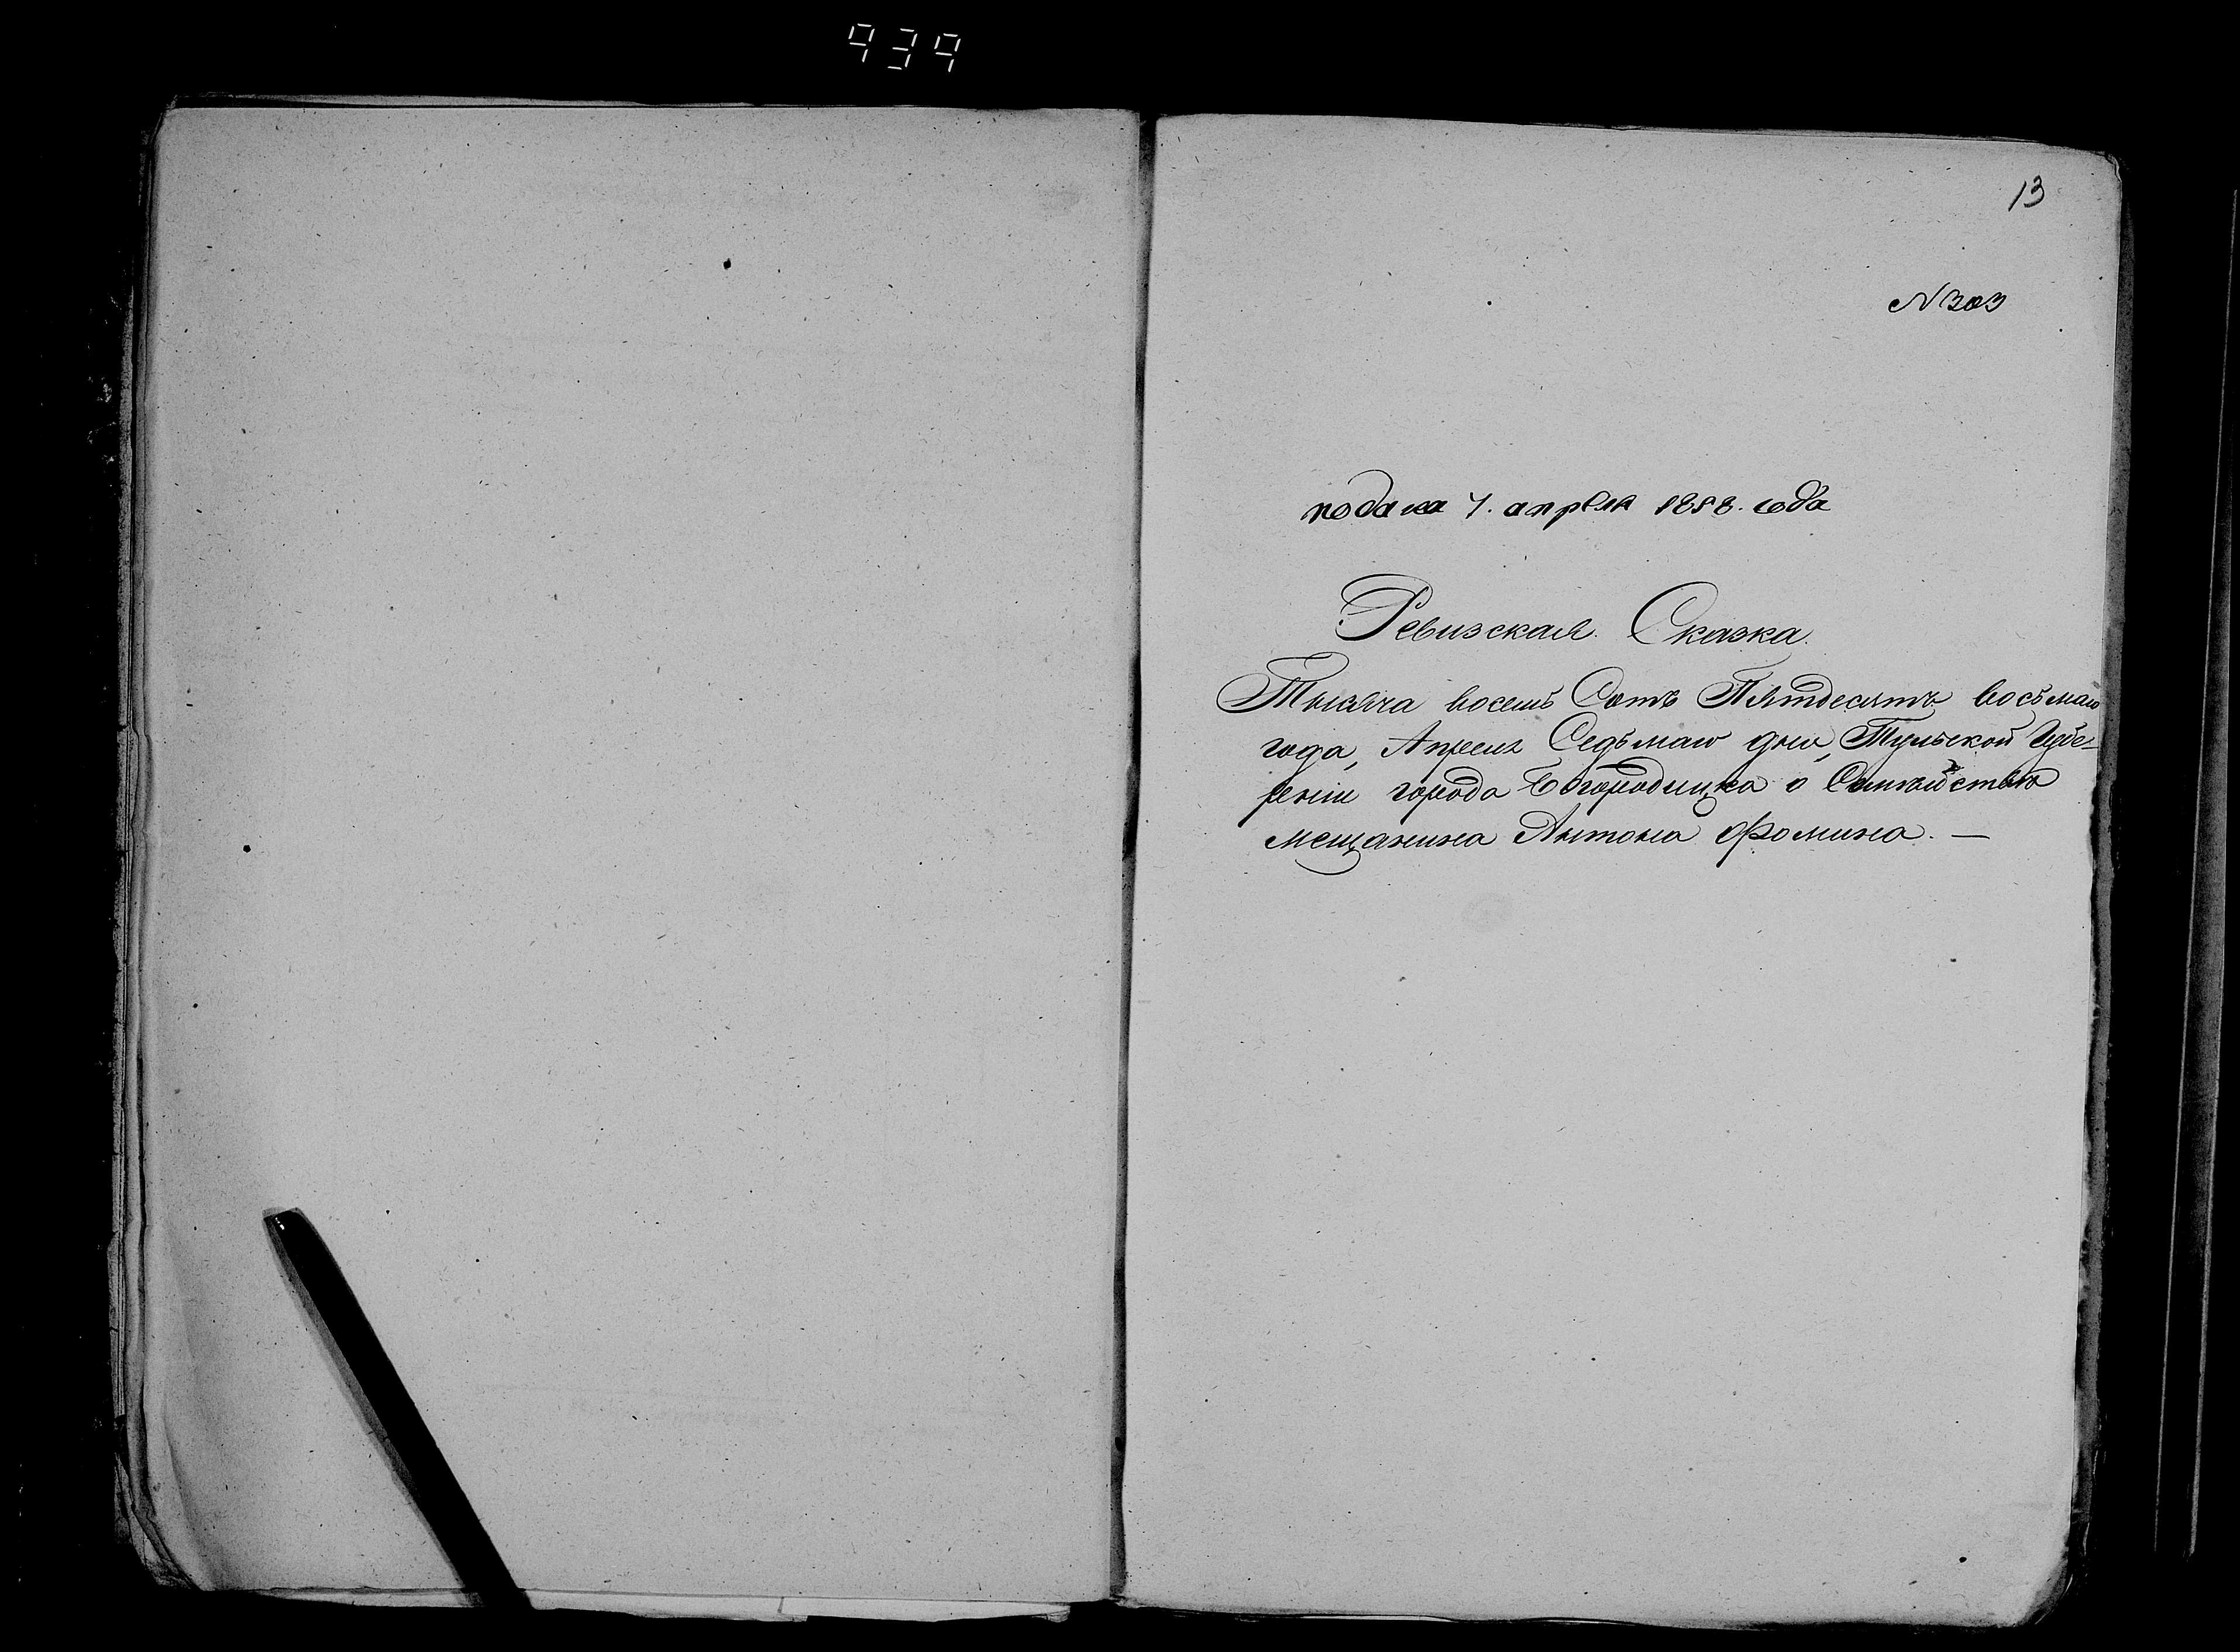 939
13
N 303
подана 7. апреля 1858. года
Ревизская Сказка.
Тысяча восемь Сотъ Пятдесятъ восьмаго
года, Апреля Седьмаго дня, Тульской Губе-
рніи города Богородицка о Семѣйствѣ
мещанина Антона Фомина. —